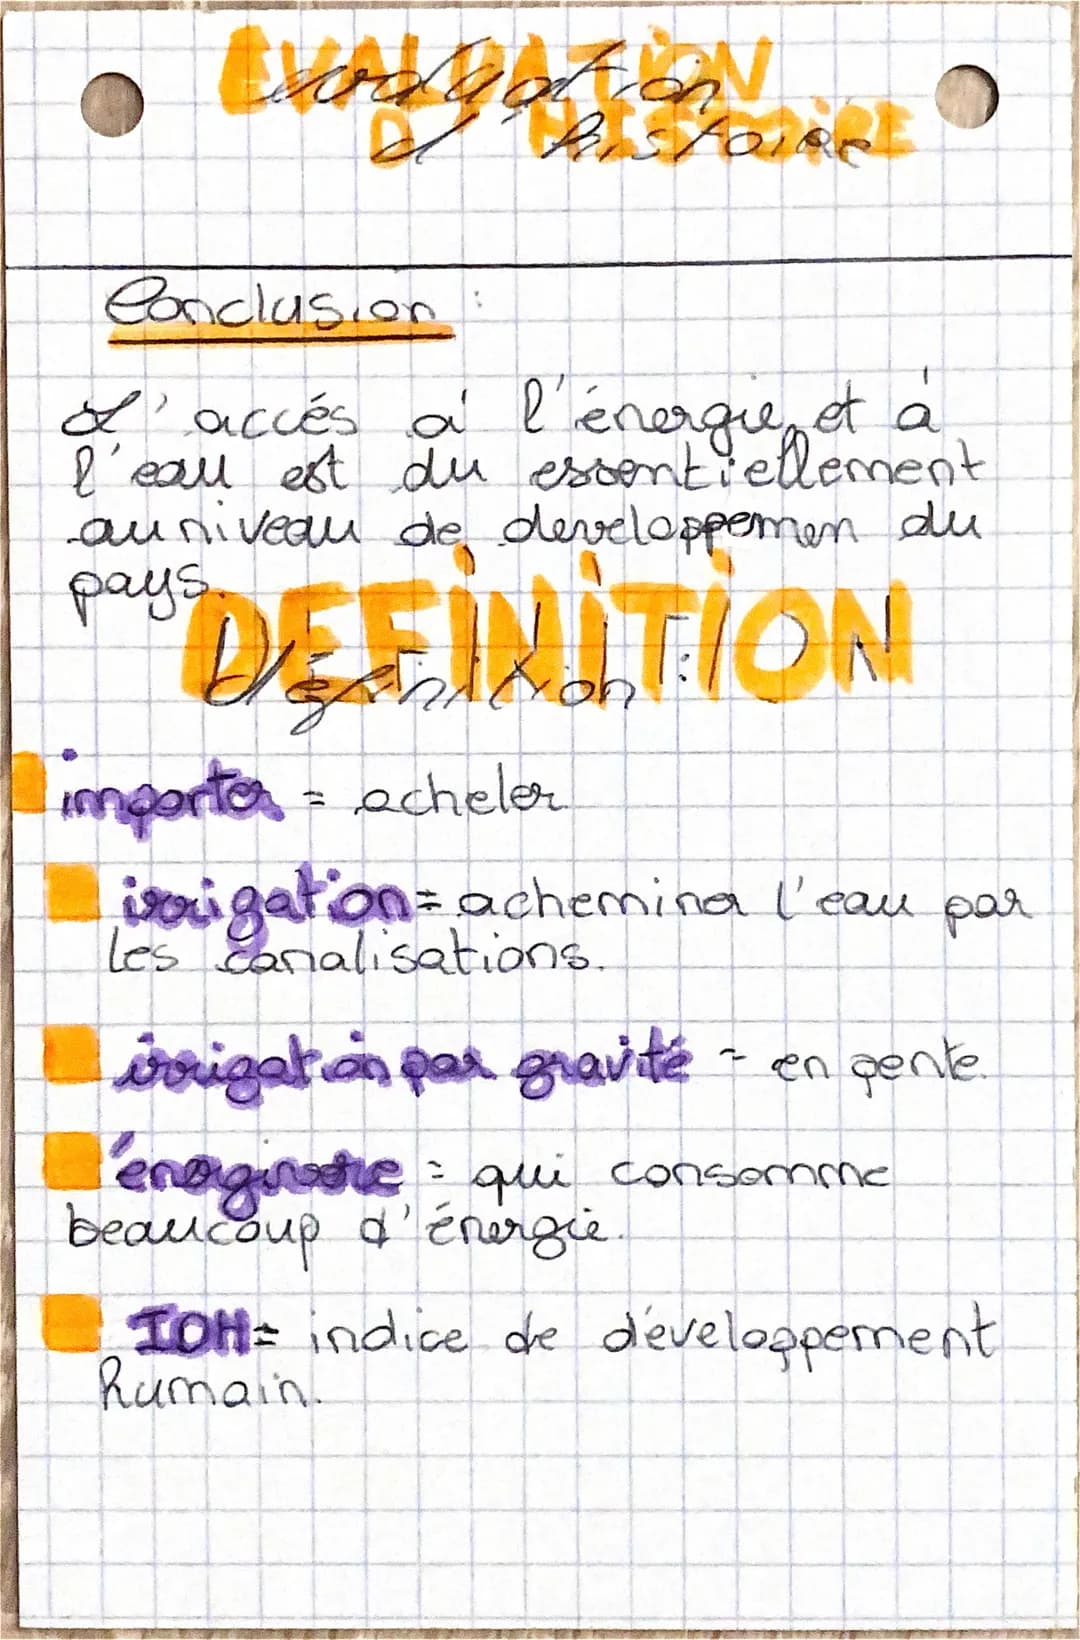 EVALUATION
evaluation
D'HISTOIRE
d'histoire
Conclusion :
L'accés à l'énergie et à
l'eau est du essentiellement
au niveau de developpemen du
pays.
DEFINITION
Définition :
importer = acheter
irrigation = acheminer l'eau par
les canalisations.
irrigation par gravité = en pente.
= qui consomme
beaucoup d'énergie.
IDH = indice de développement
humain.